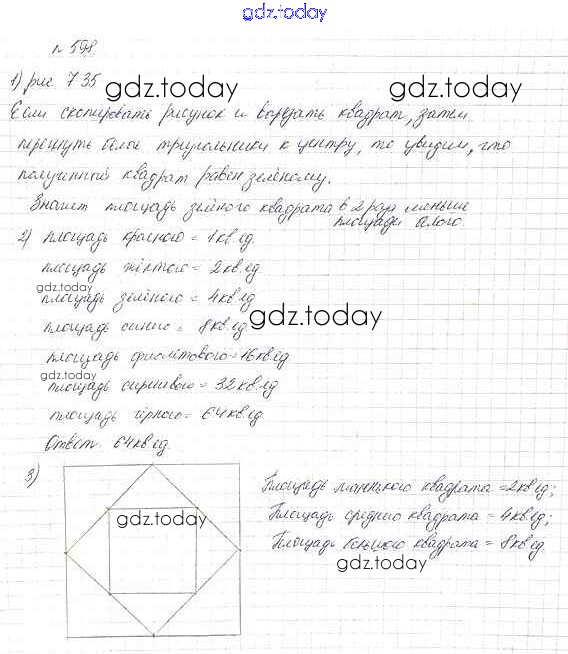 gdz.today
№ 598
1) рис 735 gdz.today gdz.today
Если скопировать рисунок и вырезать квадрат, затем
перегнуть белые треугольники к центру, то увидим, что
полученный квадрат равен зелёному.
Значит площадь зелёного квадрата в 2 раза меньше
площади белого.
2) площадь красного = 1 кв.ед.
площадь жёлтого = 2 кв.ед.
gdz.today
площадь зелёного = 4 кв.ед
площадь синего = 8 кв.ед.
gdz.today
площадь фиолетового = 16 кв.ед
gdz.today
площадь сиреневого = 32 кв.ед
площадь чёрного = 64 кв.ед
Ответ: 64 кв.ед.
3)
Площадь маленького квадрата = 2 кв.ед;
Площадь среднего квадрата = 4 кв.ед;
Площадь большого квадрата = 8 кв.ед.
gdz.today
gdz.today